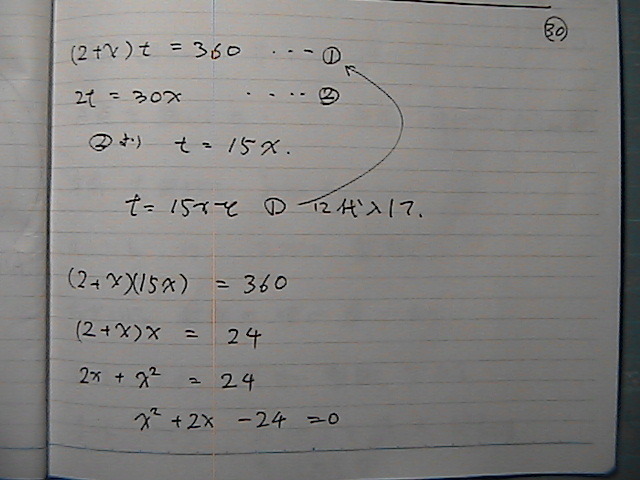 ㉚
(2+x)t = 360 ・・・①
2t = 30x ・・・・②
②より t = 15x.
t = 15xを ① に代入して.
(2+x)(15x) = 360
(2+x)x = 24
2x + x² = 24
x² + 2x - 24 = 0